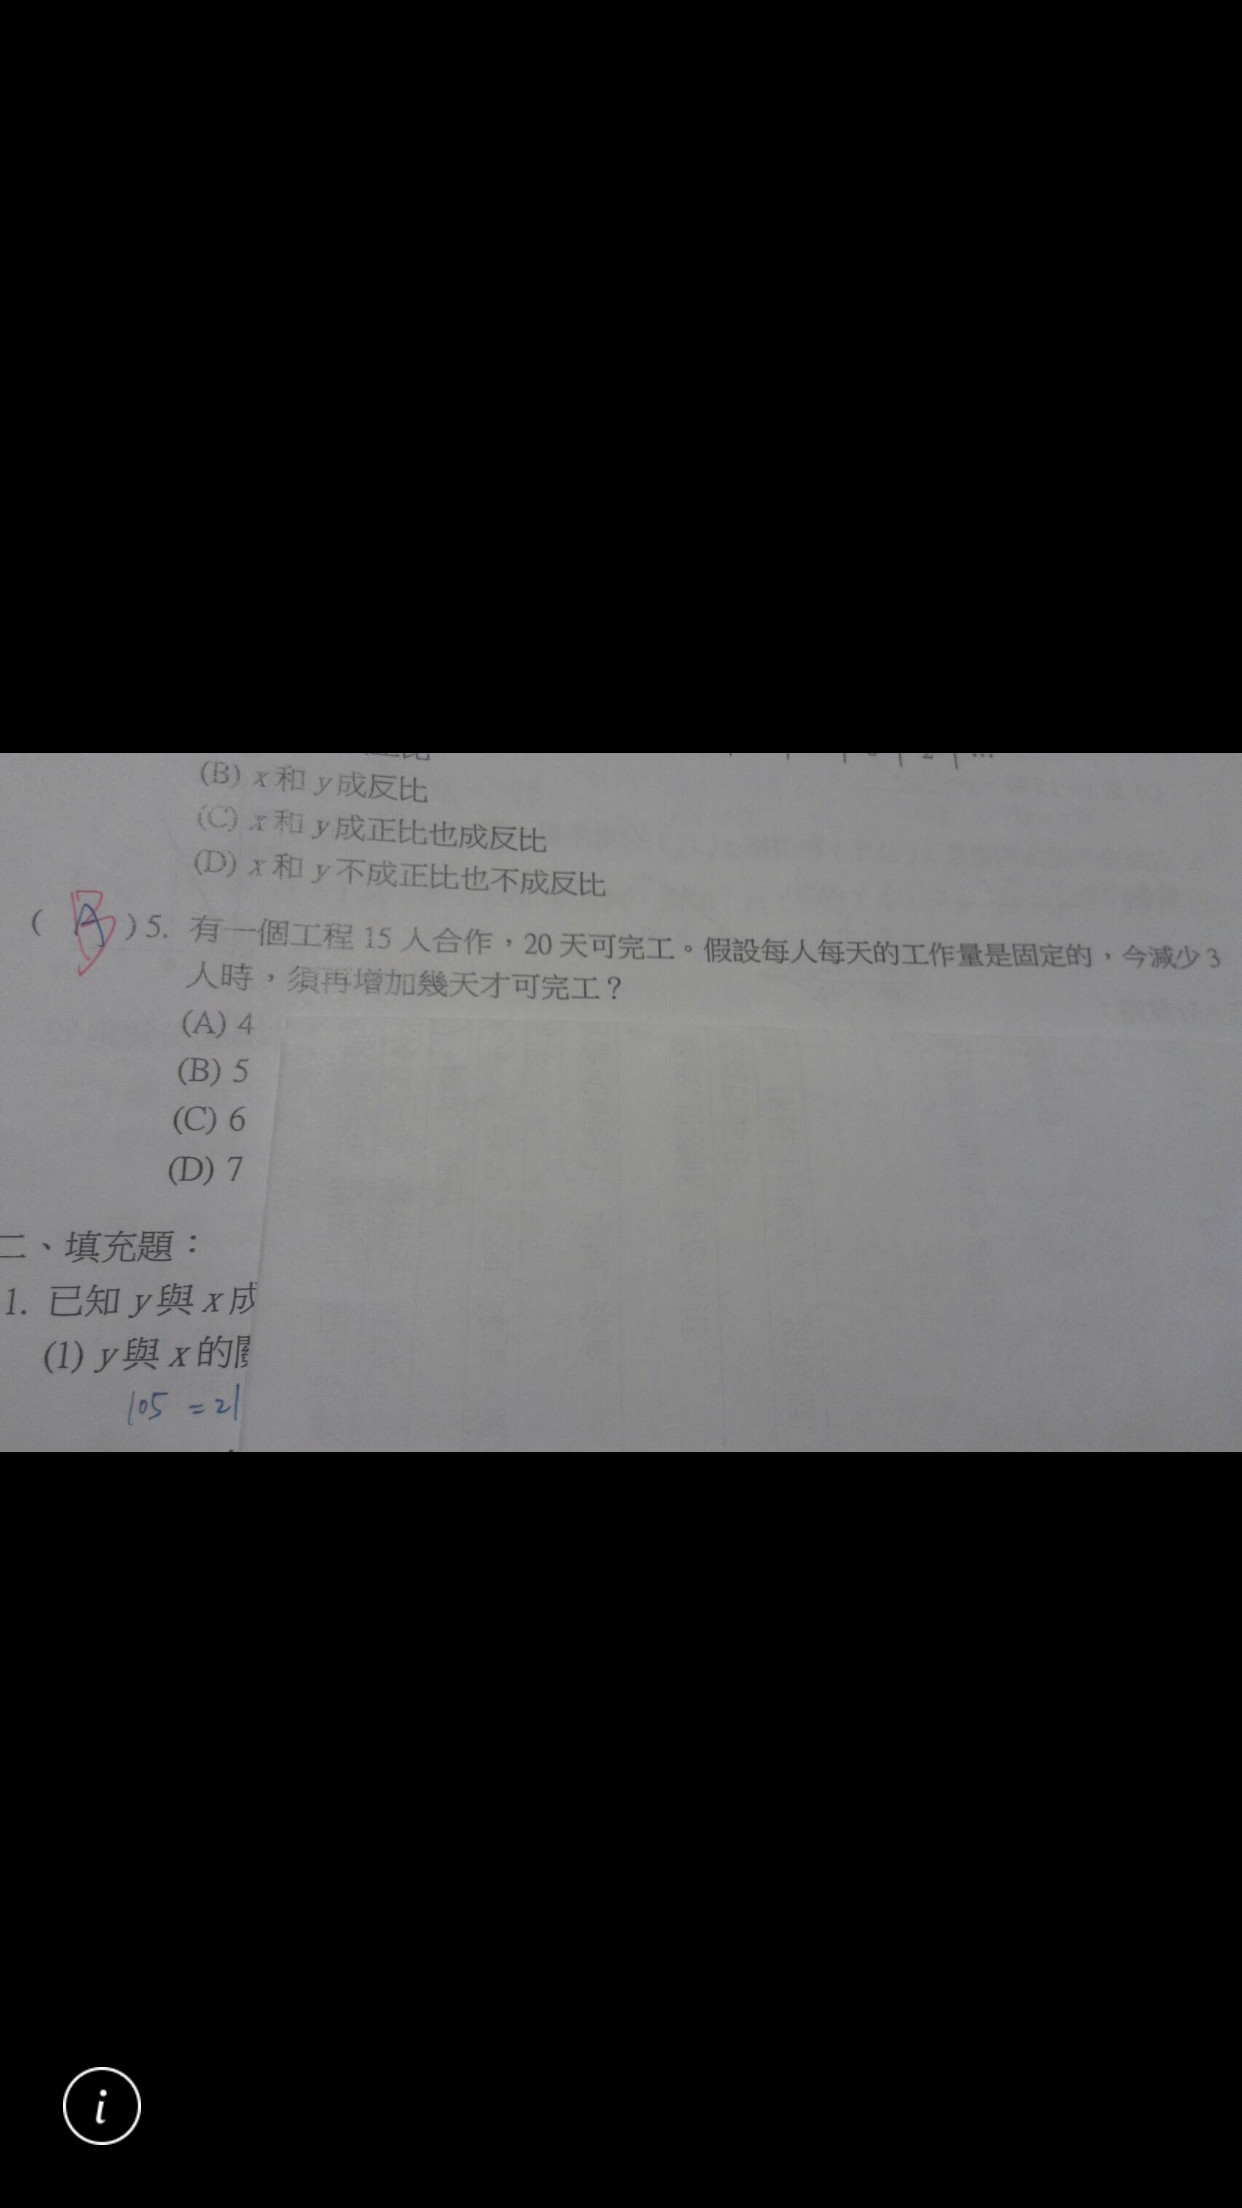 (B) x 和 y 成反比
(C) x 和 y 成正比也成反比
(D) x 和 y 不成正比也不成反比
( A ) 5. 有一個工程 15 人合作，20 天可完工。假設每人每天的工作量是固定的，今減少 3
人時，須再增加幾天才可完工？
(A) 4
(B) 5
(C) 6
(D) 7
二、填充題：
1. 已知 y 與 x 成
(1) y 與 x 的關
105 = 21
i